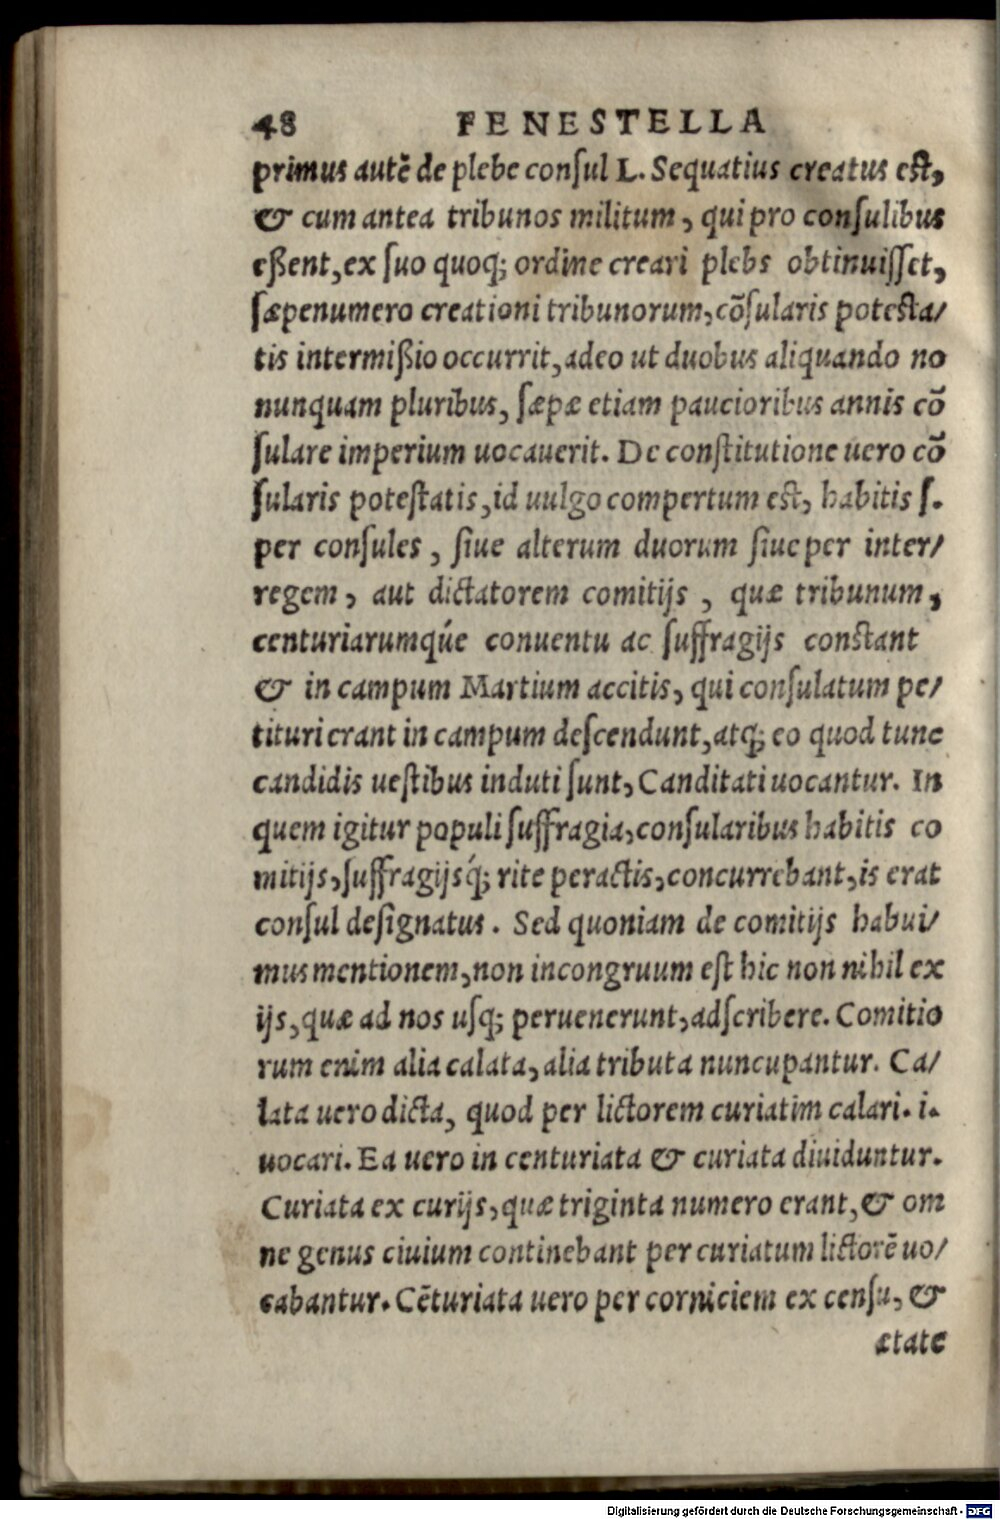 48 FENESTELLA
primus autē de plebe conſul L. Sequatius creatus eſt,
& cum antea tribunos militum, qui pro conſulibus
eßent, ex ſuo quoq; ordine creari plebs obtinuiſſet,
ſæpenumero creationi tribunorum, cōſularis poteſta/
tis intermißio occurrit, adeo ut duobus aliquando no
nunquam pluribus, ſæpæ etiam paucioribus annis cō
ſulare imperium uocauerit. De conſtitutione uero cō
ſularis poteſtatis, id uulgo compertum eſt, habitis ſ.
per conſules, ſiue alterum duorum ſiue per inter/
regem, aut dictatorem comitijs, quæ tribunum,
centuriarumqúe conuentu ac ſuffragijs conſtant
& in campum Martium accitis, qui conſulatum pe/
tituri erant in campum deſcendunt, atq; eo quod tunc
candidis ueſtibus induti ſunt, Canditati uocantur. In
quem igitur populi ſuffragia, conſularibus habitis co
mitijs, ſuffragijsq́; rite peractis, concurrebant, is erat
conſul deſignatus. Sed quoniam de comitijs habui/
mus mentionem, non incongruum eſt hic non nihil ex
ijs, quæ ad nos uſq; peruenerunt, adſcribere. Comitio
rum enim alia calata, alia tributa nuncupantur. Ca/
lata uero dicta, quod per lictorem curiatim calari. i.
uocari. Ea uero in centuriata & curiata diuiduntur.
Curiata ex curijs, quæ triginta numero erant, & om
ne genus ciuium continebant per curiatum lictorē uo/
cabantur. Cēturiata uero per corniciem ex cenſu, &
ætate
Digitalisierung gefördert durch die Deutsche Forschungsgemeinschaft - DFG